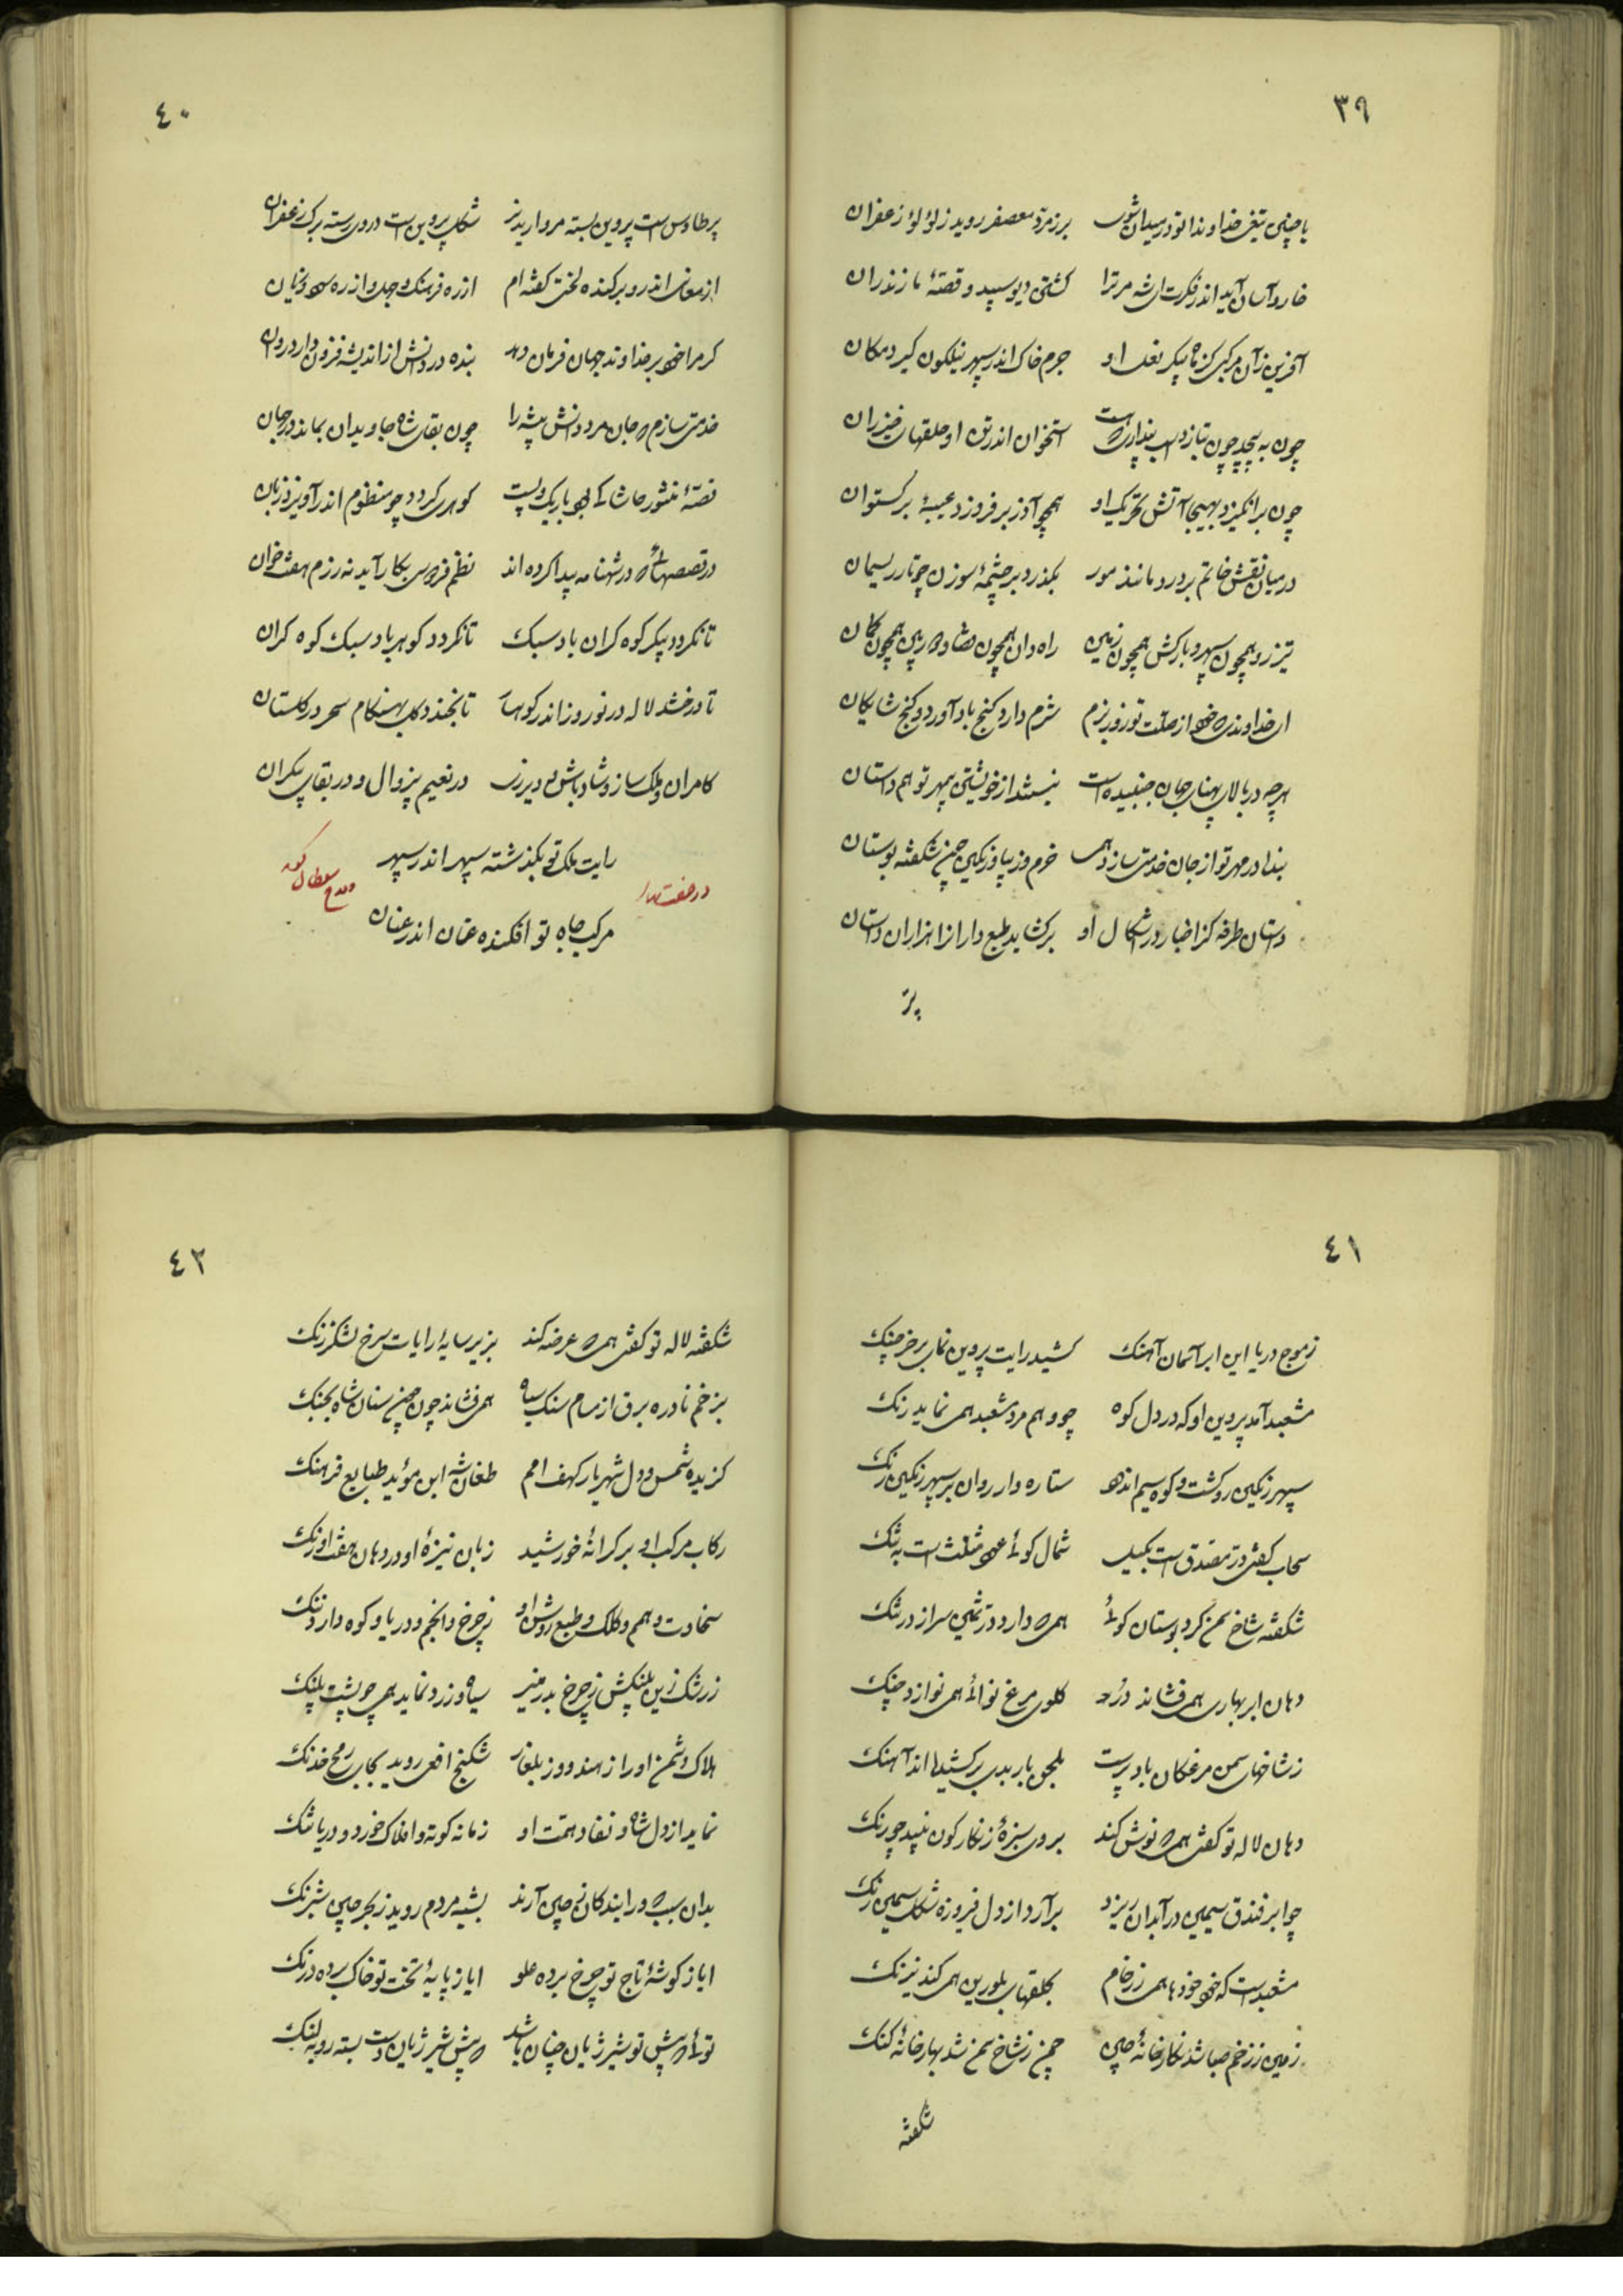 ٣٩
با چنین تیغی خداوندا تو در میدان شوی برزمرد معصفر روید ز لؤلؤ زعفران
خار و آسان آید اندر فکرت ای شه مر ترا کشتی دیو سپید و قصهٔ مازندران
آفرین زآن مرکبی کز ماه پیکر نعل او جرم خاک اندر سپهر نیلگون گیرد مکان
چون به پیچد چون بتازد اسب پنداری که هست استخوان اندر تن او حلقهای خیزران
چون برانگیزد بهیجا آتش تحریک او همچو آذر برفروزد عیبهٔ برگستوان
در میان نقش خاتم بردود مانند مور بگذرد بر چشمهٔ سوزن چو تار ریسمان
تیز رو همچون سپهر و بارکش همچون زمین راه دان همچون قضا و راه بین همچون گمان
ای خداوندی که از صلت تو روز بزم شرم دارد گنج باد آورد و گنج شایگان
هرچه در بالای پهنای جهان جنبیده است نیستند از خویشتن بی مهر تو هم داستان
بنده در مهر تو از جان خدمتی سازد همی خرم و زیبا و رنگین چون شکفته بوستان
داستان طرفه کز اخبار در اشکال او برگشاید طبع دارا از هزاران داستان
پر
٤٠
پر طاوس است پروین بسته مروارید بر شکل پروین است در وی رسته برگ زعفران
از معانی اندرو برکنده لختی گفته ام از ره فرهنگ و جد و از ره سود و زیان
گر مرا خود بر خداوند جهان فرمان دهد بنده در دانش از اندیشه فزون دارد روان
خدمتی سازم که جان مرد دانش پیشه را چون بقای شاه جاویدان بماند در جهان
قصهٔ منثور حاشا که بود باریک و پست گوهری گردد چو منظوم اندر آویزد زبان
در قصصهائی که در شهنامه پیدا کرده اند نظم فردوسی بکار آید نه رزم هفتخوان
تا نگردد پیکر کوه گران باد سبک تا نگردد گوهر باد سبک کوه گران
تا درخشد لاله در نوروز اندر کوهسار تا بخندد گل بهنگام سحر در گلستان
کامران و ملک ساز و شاد باش و دیر زی در نعیم بی زوال و در بقای بیکران
رایت ملک تو بگذشته سپهر اندر سپهر
مرکب جاه تو افکنده عنان اندر عنان
در صفت بهار و مدح سلطان گوید
٤١
ز موج دریا این ابر آسمان آهنگ کشید رایت پروین نمای بر خرچنگ
مشعبد آمد پروین او که در دل کوه چو وهم مرد مشعبد همی نماید رنگ
سپهر رنگین رو گشت و کوه سیم اندود ستاره وار روان بر سپهر رنگین رنگ
سحاب گفتی در تصدق است بکیل شمال گوئی عود مثلث است به تنگ
شکفته شاخ سمن گرد بوستان گوئی همی که دارد در ثمین سر از در تنگ
دهان ابر بهاری همی فشاند در گلوی مرغ نوائی همی نوازد چنگ
ز شاخهای سمن مرغکان باد پرست بلحن باربدی برکشیده اند آهنگ
دهان لاله تو گفتی همی که نوش کند بروی سبزهٔ زنگار گون نبید چو رنگ
چو ابر فندق سیمین در آبدان ریزد برآرد از دل فیروزه شکل سیمین رنگ
مشعبد است که خود خودها همی ز رخام بحلقهای بلورین همی کند نیرنگ
زمین ز زخم صبا شد نگارخانهٔ چین چمن ز شاخ سمن شد بهارخانهٔ گنگ
شکفته
٤٢
شکفته لاله تو گفتی همی که عرضه کند بزیر سایهٔ رایات سرخ لشکر زنگ
بزخم نادره برق از مسام سنگ سیاه همی فشاند چون چین سنان شاه بجنگ
گزیده شمس دول شهریار کهف امم طغانشه ابن مؤید طبایع فرهنگ
رکاب مرکب او بر کرانهٔ خورشید زبان نیزهٔ او در دهان هفت اورنگ
سخاوت و هم و کلک و طبع روشن او ز چرخ و انجم و دریا و کوه دارد ننگ
ز رشک زین پلنگیش ز چرخ بدر منیر سیاه و زرد نماید همی چو پشت پلنگ
هلاک دشمن او را ز هند و وز بلغار شکنج افعی روید بجای رمح خدنگ
نماید از دل شاه و نفاد همت او زمانه کوته و افلاک خرد و دریا تنگ
بدان سبب که درایندگان ز چین آرند بشبه مردم روید ز بحر چین شترنگ
ایا ز گوشهٔ تاج تو چرخ برده علو ایا ز پایهٔ تخت تو خاک برده درنگ
توئی که پیش تو شیر ژیان چنان باشد که پیش شیر ژیان دست بسته روبه لنگ